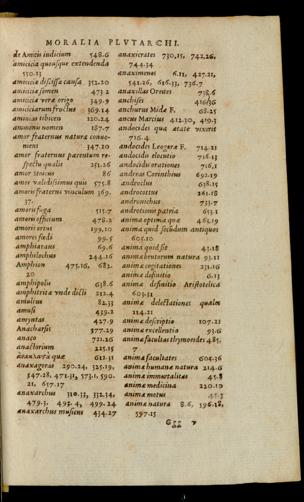 MORALIA PLVTARCHI.
de Amicis iudicium 548.6
amicitia quousque extendenda
550.13
amicitiæ dississæ causa 352.20
amicitiæ semen 473.2
amicitiæ veræ origo 349.9
amicitiarum fructus 369.14
amicus bibecen 120.24
ammonij nomen 187.7
amor fraternus natura conue-
niens 347.20
amor fraternus parentum re-
spectu qualis 251.26
amor stoicus 86
amor validissimus quis 575.8
amoris fraterni vinculum 369.
37.
amoris fuga 515.7
amoris officium 478.2
amoris ortus 199.10
amores fœdi 99.5
amphiaraus 69.6
amphilochus 244.16
Amphion 475.16, 682.
20
amphipolis 638.6
amphitrite vnde dicti 252.4
amulius 82.33
amusi 439.2
amyntas 427.9
Anacharsis 377.29
anaco 721.26
anactorium 225.15
612.31
anaxagoras 290.24. 325.19,
547.28, 471.31, 573.1, 590.
21, 657.17
anaxarchus 310.33, 332.34,
479.3, 492.4, 499.24
anaxarchus musicus 434.27
anaxicrates 730.15, 742.26,
744.34
anaximenes 6.11, 427.21,
541.26, 616.33, 736.7
anaxillas Orettes 738.6
anchises 416.36
anchurus Midæ F. 68.25
ancus Marcius 412.30, 419.3
andocides qua ætate vixerit
716.4
andocides Leogoræ F. 714.21
andocidis elocutio 716.13
andocidis orationes 716.1
andreas Corinthius 692.19
androclus 638.15
androcottus 261.18
andronichus 733.7
androtionis patria 653.1
anima optima quæ 462.19
anima quid secundum antiquos
605.10
anima quid sit 43.18
anima brutorum natura 93.11
animæ cogitationes 231.16
animæ definitio 6.13
animæ definitio Aristotelica
603.31
animæ delectationes quales
114.21
animæ descriptio 107.21
animæ excellentia 93.6
animæ facultas thymoeides 485.
7
animæ facultates 604.36
animæ humanæ natura 214.6
animæ immortalitas 45.8
animæ medicina 220.10
animæ motus 45.3
animæ natura 8.6, 596.18,
597.15
Ggg v